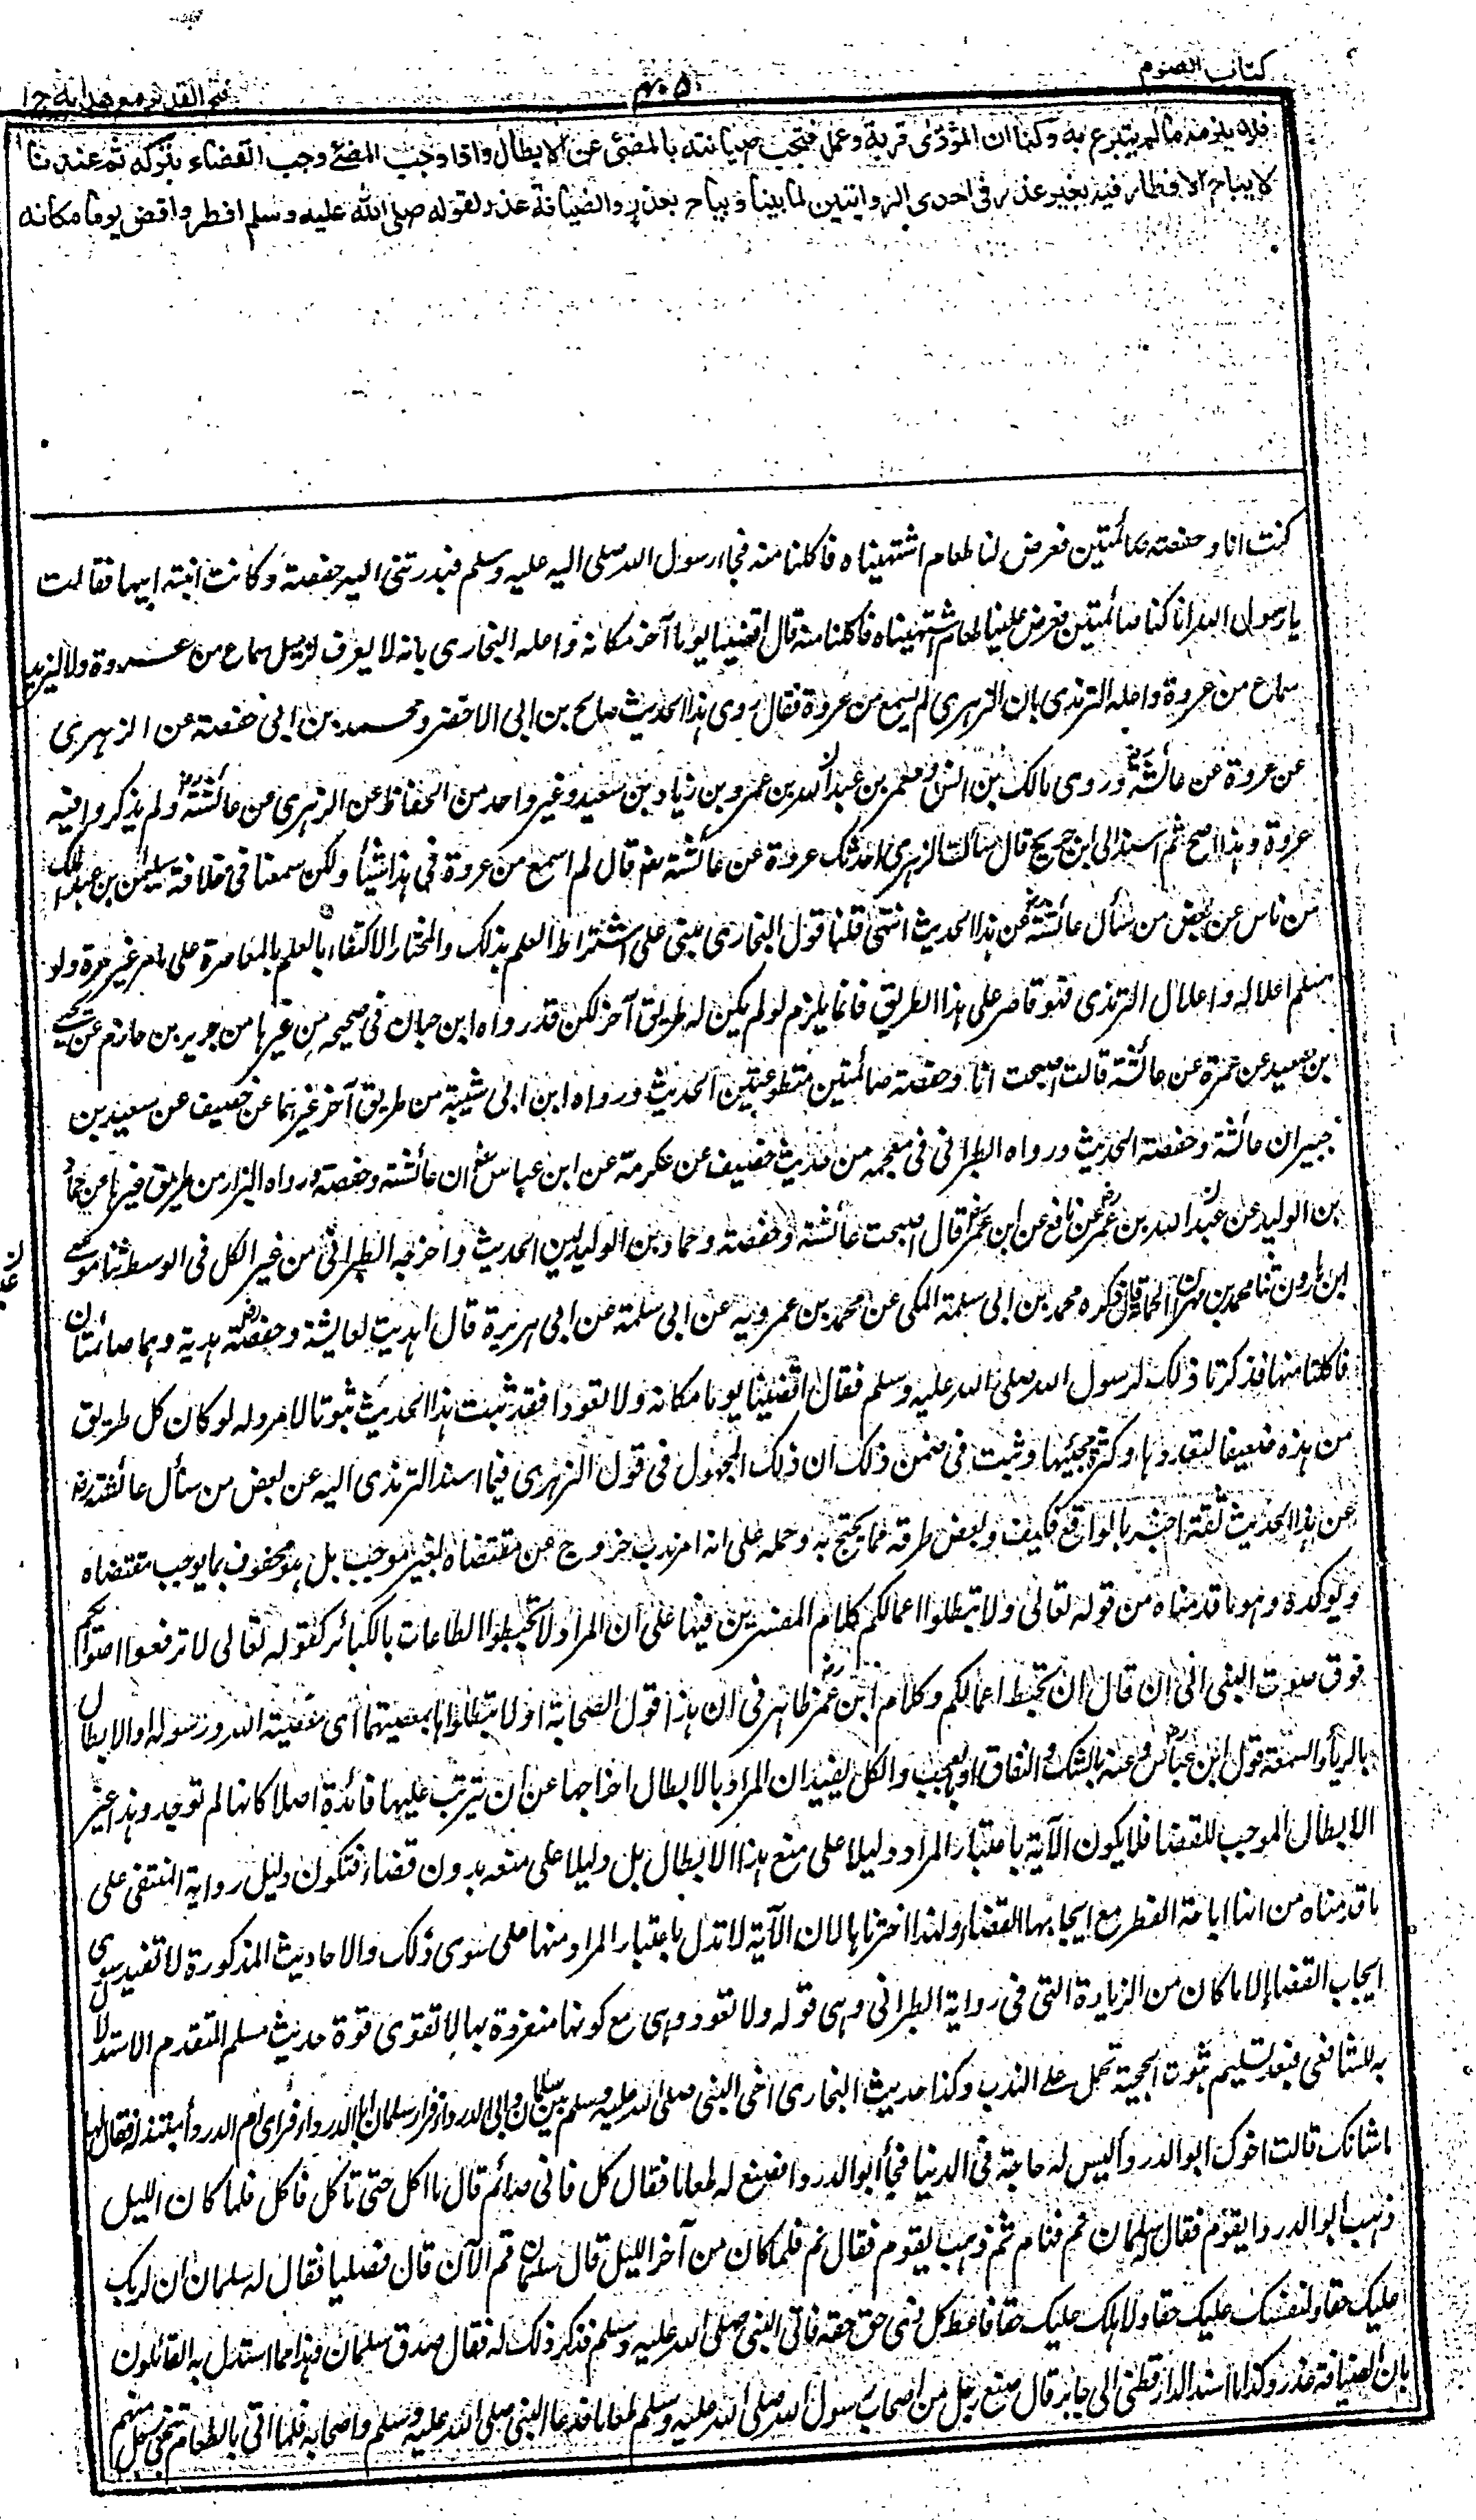 كتاب الصوم
۴۰۵
فتح القدير مع هداية ج ا
فلا يلزمه ما لم يتبرع به ولنا ان المؤدى قربة وعمل فتجب صيانته بالمضي عن الابطال واذا وجب المضي وجب القضاء بتركه ثم عندنا
لا يباح الافطار فيه بغير عذر في احدى الروايتين لما بينا ويباح بعذر والضيافة عذر لقوله صلى الله عليه وسلم افطر واقض يوما مكانه
كنت انا وحفصة صائمتين فعرض لنا طعام اشتهيناه فاكلنا منه فجاء رسول الله صلى اليه عليه وسلم فبدرتني اليه حفصة وكانت ابنة ابيها فقالت
يا رسول الله انا كنا صائمتين فعرض علينا طعام اشتهيناه فاكلنا منه قال اقضيا يوما آخر مكانه واعله البخاري بانه لا يعرف لزميل سماع من عروة ولا ليزيد
سماع من عروة واعله الترمذي بان الزهري لم يسمع من عروة فقال روى هذا الحديث صالح بن ابي الاخضر ومحمد بن ابي حفصة عن الزهري
عن عروة عن عائشة رض وروى مالك بن انس ومعمر بن عبد الله بن عمرو بن زياد بن سعيد وغير واحد من الحفاظ عن الزهري عن عائشة رض ولم يذكروا فيه
عروة وهذا اصح ثم اسند الى ابن جريج قال سألت الزهري احدثك عروة عن عائشة رض قال لم اسمع من عروة في هذا شيئا ولكن سمعنا في خلافة سليمن بن عبد الملك
من ناس عن بعض من سأل عائشة رض عن هذا الحديث انتهى قلنا قول البخاري مبني على اشتراط العلم بذلك والمختار الاكتفاء بالعلم بالمعاصرة على ما مر غير مرة ولو
سلم اعلاله واعلال الترمذي فهو قاصر على هذا الطريق فانما يلزم لو لم يكن له طريق آخر لكن قد رواه ابن حبان في صحيحه من غيرها من جرير بن حازم عن يحيى
بن سعيد عن عمرة عن عائشة قالت اصبحت انا وحفصة صائمتين متطوعتين الحديث ورواه ابن ابي شيبة من طريق آخر غيرهما عن خصيف عن سعيد بن
جبير ان عائشة وحفصة الحديث ورواه الطبراني في معجمه من حديث خصيف عن عكرمة عن ابن عباس رض ان عائشة وحفصة ورواه البزار من طريق غيرها من حماد
بن الوليد عن عبد الله بن عمر رض عن نافع عن ابن عمر رض قال اصبحت عائشة وحفصة وحماد بن الوليد لين الحديث واخرجه الطبراني من غير الكل في الوسط ثنا موسى
ابن هارون ثنا محمد بن مهران الجمال قال ذكره محمد بن ابي سلمة المكي عن محمد بن عمرويه عن ابي سلمة عن ابي هريرة قال اهديت لعايشة وحفصة رض هدية وهما صائمتان
فاكلتا منها فذكرتا ذلك لرسول الله صلى الله عليه وسلم فقال اقضيا يوما مكانه ولا تعودا فقد ثبت هذا الحديث ثبوتا لا مرد له لو كان كل طريق
من هذه ضعيفا لتعددها وكثرة مجيئها وثبت في ضمن ذلك ان ذلك المجهول في قول الزهري فيما اسند الترمذي اليه عن بعض من سأل عائشة رض
عن هذا الحديث ثقة اخبر بالواقع فكيف وبعض طرقه مما يحتج به وحمله على انه امر ندب خروج عن مقتضاه بغير موجب بل هو محفوف بما يوجب مقتضاه
ويوكده وهو ما قدمناه من قوله تعالى ولا تبطلوا اعمالكم كلام المفسرين فيها على ان المراد لا تحبطوا الطاعات بالكبائر كقوله تعالى لا ترفعوا اصواتكم
فوق صوت النبي الى ان قال ان تحبط اعمالكم وكلام ابن عمر رض ظاهر في ان هذا قول الصحابة او لا تبطلوها بمعصيتهما اى معصية الله ورسوله او الابطال
بالرياء والسمعة قول ابن عباس رض وعنه بالشك والنفاق او بالعجب والكل يفيد ان المراد بالابطال اخراجها عن ان تترتب عليها فائدة اصلا كانها لم توجد وهذا غير
الابطال الموجب للقضا فلا يكون الآية باعتبار المراد دليلا على منع هذا الابطال بل دليلا على منعه بدون قضاء فتكون دليل رواية المنتقى على
ما قدمناه من انها اباحة الفطر مع ايجابها القضاء ولهذا اخترناها لان الآية لا تدل باعتبار المراد منها على سوى ذلك والاحاديث المذكورة لا تفيد سوى
ايجاب القضا إلا ما كان من الزيادة التي في رواية الطبراني وهي قوله ولا تعودا وهي مع كونها منفردة بها لا تقوى قوة حديث مسلم المتقدم الاستدلال
به للشافعي فبعد تسليم ثبوت الحجية تحمل على الندب وكذا حديث البخاري اخى النبي صلى الله عليه وسلم بين سلمان وابى الدرداء فزار سلمان ابا الدرداء فرأى ام الدرداء متبذلة فقال لها
ما شانك قالت اخوك ابو الدرداء ليس له حاجة في الدنيا فجاء ابو الدرداء فصنع له طعاما فقال كل فانى صائم قال ما اكل حتى تأكل فاكل فلما كان الليل
ذهب ابو الدرداء يقوم فقال سلمان نم فنام ثم ذهب يقوم فقال نم فلما كان من آخر الليل قال سلمان قم الآن قال فصليا فقال له سلمان ان لربك
عليك حقا ولنفسك عليك حقا ولاهلك عليك حقا فاعط كل ذي حق حقه فاتى النبي صلى الله عليه وسلم فذكر ذلك له فقال صدق سلمان وهذا مما استدل به القائلون
بان الضيافة عذر وكذا ما اسند الدارقطني الى جابر قال صنع رجل من اصحاب رسول الله صلى الله عليه وسلم طعاما فدعا النبي صلى الله عليه وسلم واصحابه فلما اتى بالطعام تنحى رجل منهم